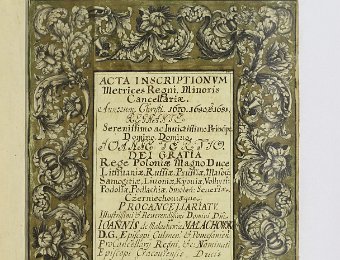 ACTA INSCRIPTIONVM
Metrices Regni, Minoris
Cancellariæ.
Annorum Christi. 1679. 1680 & 1681.
REGNANTE
Serenissimo ac Invictissimo Principe
Domino Domino
IOANNE TERTIO
DEI GRATIA
Rege Poloniæ Magno Duce
Lithuaniæ, Russiæ, Prussiæ, Masoviæ
Samogitiæ, Livoniæ, Kyoviæ, Volhyniæ
Podoliæ, Podlachiæ, Smolen: Severiæ,
Czerniechoviæque.
PROCANCELLARIATV
Illustrissimi & Reverendissimi Domini Dni
IOANNIS de Malachowice MALACHOWSKI
D.G. Episcopi Culmen: & Pomesaniæ
ProCancellarij Regni, &c. Nominati
Episcopi Cracoviensis Ducis